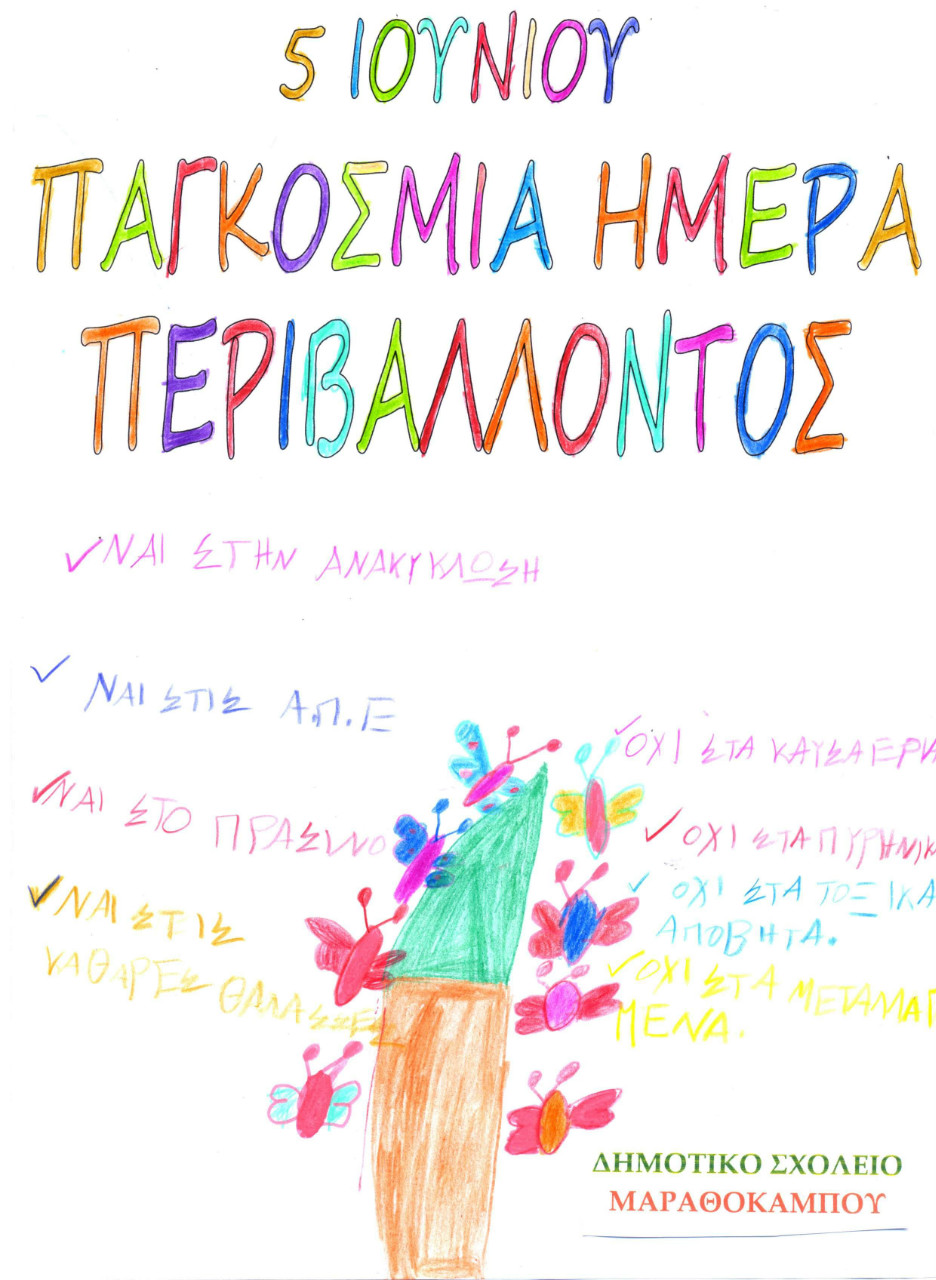 5 ΙΟΥΝΙΟΥ
ΠΑΓΚΟΣΜΙΑ ΗΜΕΡΑ
ΠΕΡΙΒΑΛΛΟΝΤΟΣ
✓ΝΑΙ ΣΤΗΝ ΑΝΑΚΥΚΛΩΣΗ
✓ ΝΑΙ ΣΤΙΣ Α.Π.Ε
✓ΝΑΙ ΣΤΟ ΠΡΑΣΙΝΟ
✓ΝΑΙ ΣΤΙΣ
ΚΑΘΑΡΕΣ ΘΑΛΑΣΣΕΣ
✓ΟΧΙ ΣΤΑ ΚΑΥΣΑΕΡΙ
✓ ΟΧΙ ΣΤΑ ΠΥΡΗΝΙΚ
✓ ΟΧΙ ΣΤΑ ΤΟΞΙΚΑ
ΑΠΟΒΗΤΑ.
✓ΟΧΙ ΣΤΑ ΜΕΤΑΛΛΑ
ΜΕΝΑ.
ΔΗΜΟΤΙΚΟ ΣΧΟΛΕΙΟ
ΜΑΡΑΘΟΚΑΜΠΟΥ